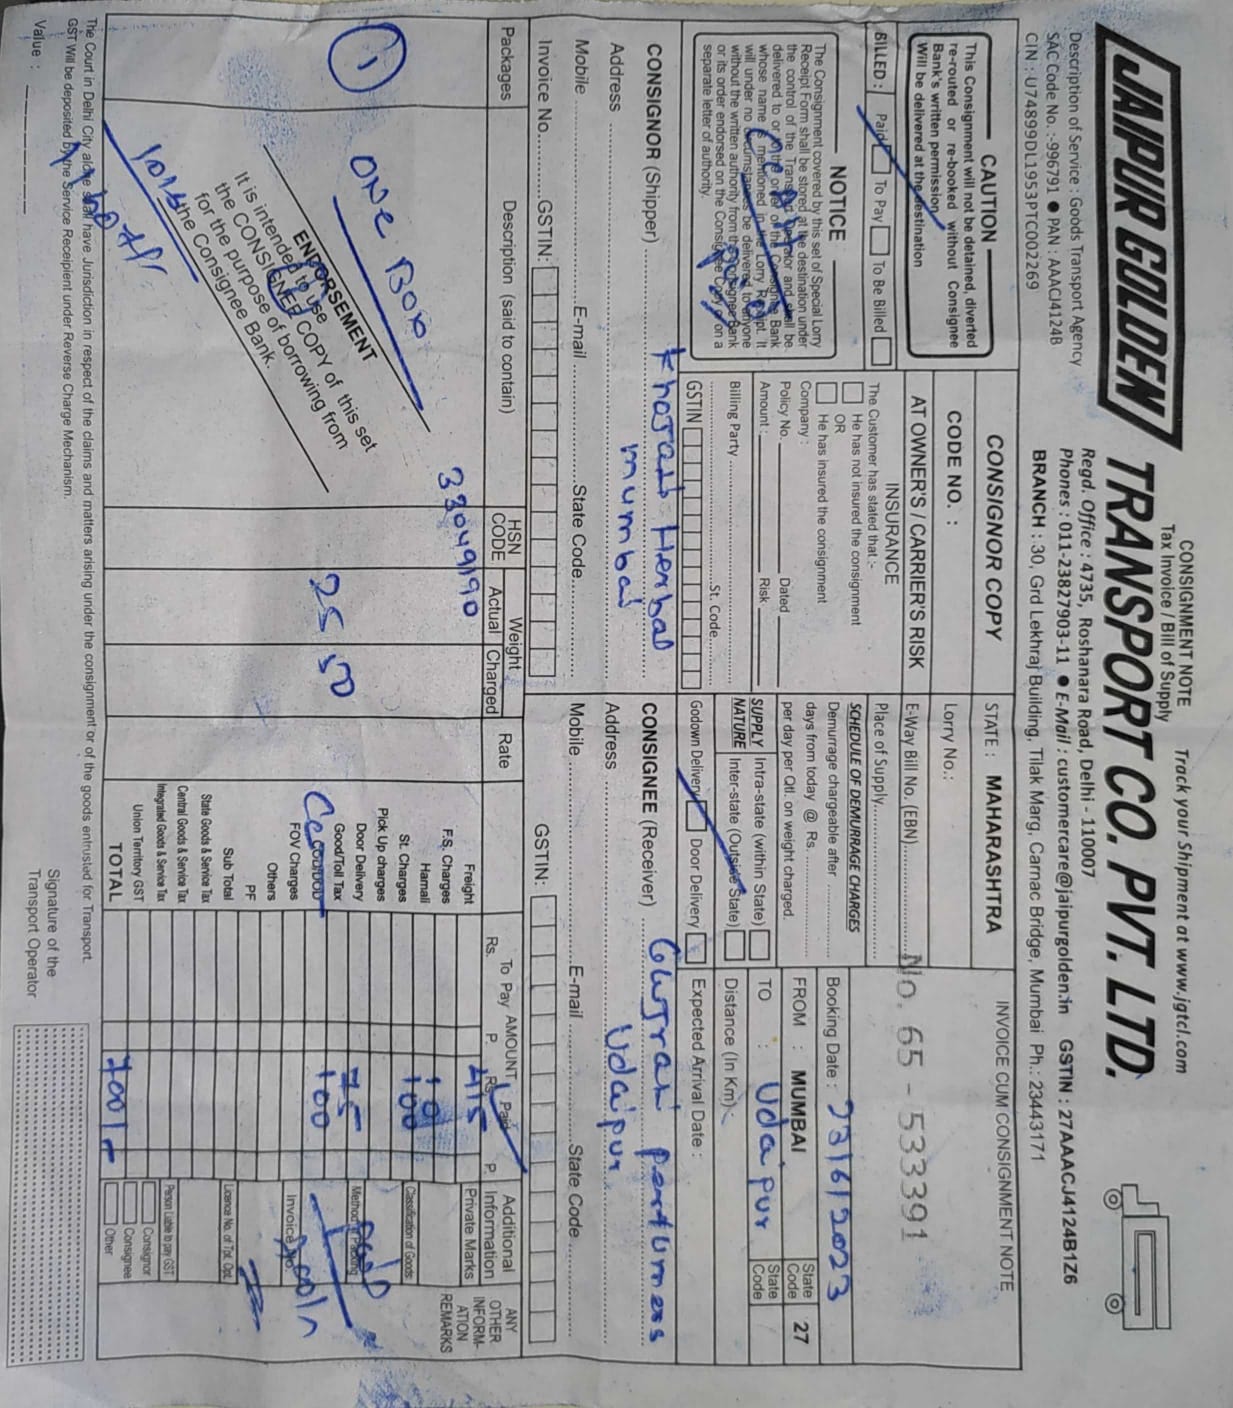 CONSIGNMENT NOTE
Tax Invoice / Bill of Supply
Track your Shipment at www.jgtcl.com
JAIPUR GOLDEN TRANSPORT CO. PVT. LTD.
Regd. Office : 4735, Roshanara Road, Delhi - 110007
Description of Service : Goods Transport Agency
Phones : 011-23827903-11 ● E-Mail : customercare@jaipurgolden.in GSTIN : 27AAACJ4124B1Z6
SAC Code No. :-996791 ● PAN : AAACJ4124B
BRANCH : 30, Grd Lekhraj Building, Tilak Marg, Carnac Bridge, Mumbai Ph.: 23443171
CIN : U74899DL1953PTC002269
CAUTION
This Consignment will not be detained, diverted
re-routed or re-booked without Consignee
Bank's written permission
Will be delivered at the destination
BILLED : Paid To Pay To Be Billed
NOTICE
The Consignment covered by this set of Special Lorry
Receipt Form shall be stored at the destination under
the control of the Transport Operator and shall be
delivered to or to the order of the Consignee Bank
whose name is mentioned in the Lorry Receipt. It
will under no circumstances be delivered to anyone
without the written authority from the Consignee Bank
or its order endorsed on the Consignee Copy or on a
separate letter of authority.
CONSIGNOR COPY
CODE NO. :
AT OWNER'S / CARRIER'S RISK
INSURANCE
The Customer has stated that :-
He has not insured the consignment
OR
He has insured the consignment
Company :
Policy No. Dated
Amount : Risk
Billing Party
St. Code
GSTIN
STATE : MAHARASHTRA
Lorry No.:
E-Way Bill No. (EBN)
Place of Supply
SCHEDULE OF DEMURRAGE CHARGES
Demurrage chargeable after
days from today @ Rs.
per day per Qtl. on weight charged.
SUPPLY NATURE
Intra-state (within State)
Inter-state (Outside State)
Godown Delivery Door Delivery
INVOICE CUM CONSIGNMENT NOTE
No. 65 - 5333391
Booking Date : 23/6/2023
FROM : MUMBAI State Code 27
TO : Udaipur State Code
Distance (In Km)
Expected Arrival Date :
CONSIGNOR (Shipper) Kharati Herbal
Address mumbai
Mobile E-mail State Code
Invoice No. GSTIN:
CONSIGNEE (Receiver) Gurjari perfumers
Address Udaipur
Mobile E-mail State Code
GSTIN:
Packages
Description (said to contain)
HSN CODE
Weight
Actual Charged
Rate
AMOUNT
To Pay Paid
Rs. P. Rs. P.
Additional Information
ANY OTHER INFORMATION REMARKS
1
ONE BOX
33049190
25 50
ENDORSEMENT
It is intended to use
the CONSIGNEE COPY of this set
for the purpose of borrowing from
the Consignee Bank.
Freight 415
F.S. Charges
Hamali 10
St. Charges 100
Pick Up charges
Door Delivery 75
Good/Toll Tax
FOV Charges
Others
PF
Sub Total
State Goods & Service Tax
Central Goods & Service Tax
Integrated Goods & Service Tax
Union Territory GST
TOTAL 700/-
Private Marks
Classification of Goods
Method of Packing
Invoice No.
Licence No. of Tpt. Opt.
Person Liable to pay GST
Consignor
Consignee
Other
The Court in Delhi City alone shall have Jurisdiction in respect of the claims and matters arising under the consignment or of the goods entrusted for Transport.
GST Will be deposited by the Service Receipient under Reverse Charge Mechanism.
Value :
Signature of the
Transport Operator